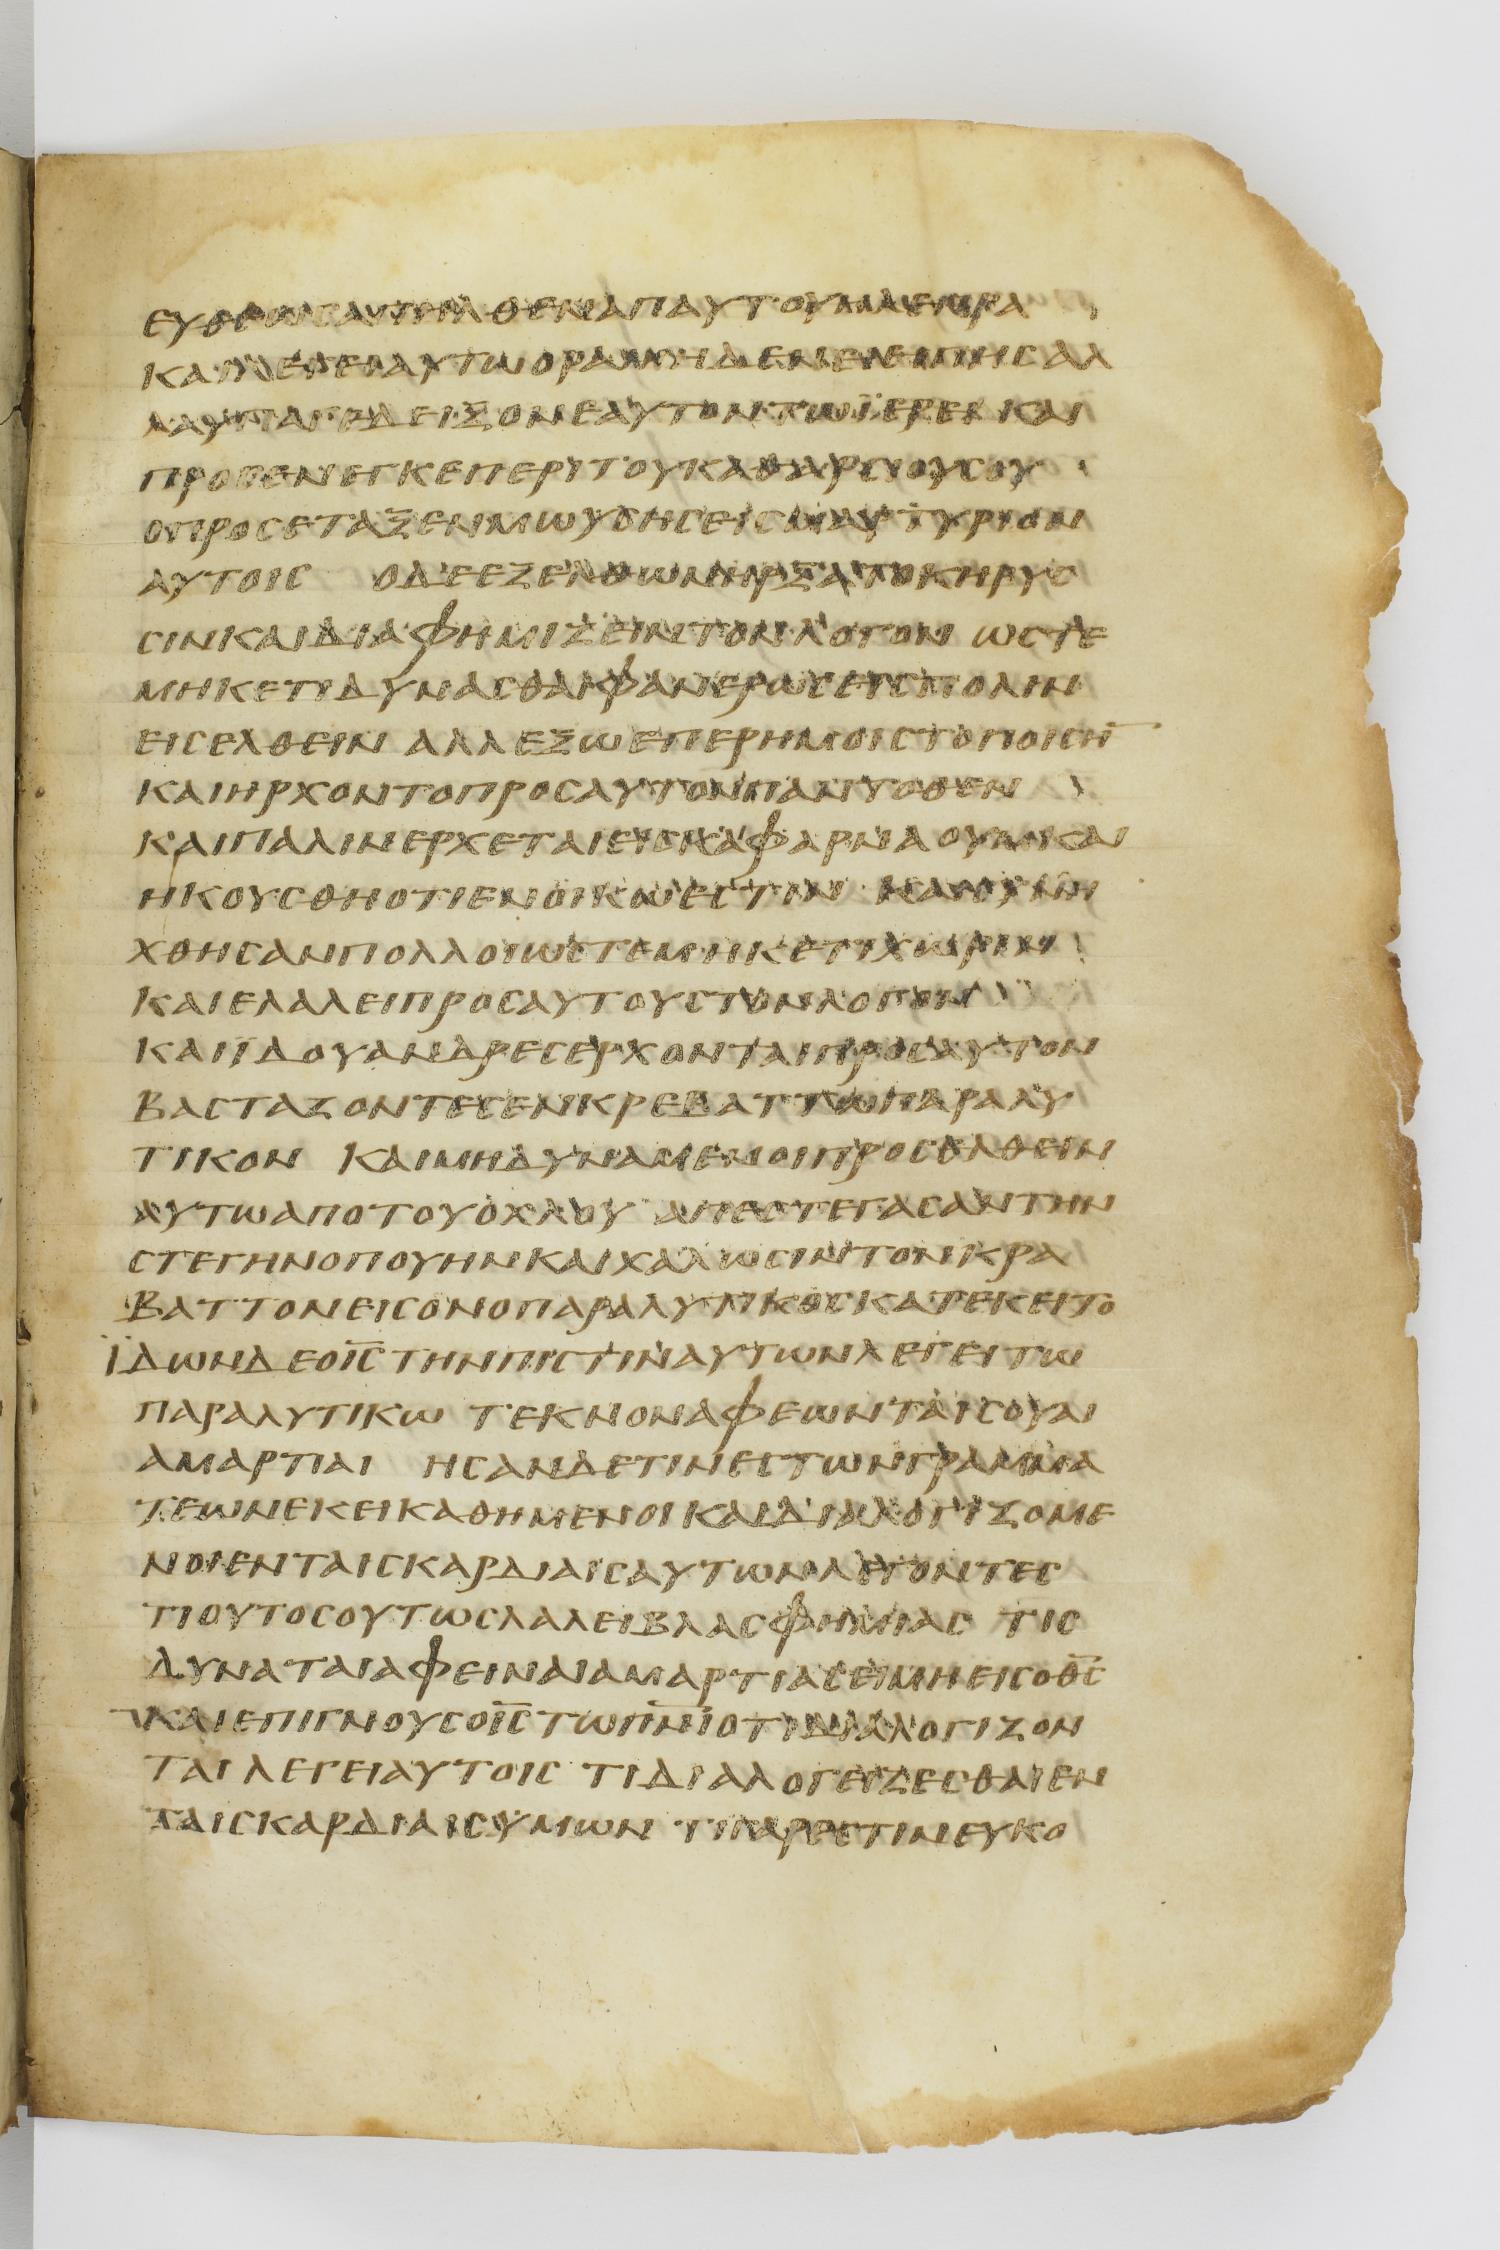 ευθεωσαπηλθεναπαυτουηλεπρα
καιλεγειαυτωοραμηδενιειπησαλ
λαυπαγεδειξονσεαυτοντωϊερεικαι
προσενεγκεπεριτουκαθαρισμουσου
οπροσεταξενμωυσησειςμαρτυριον
αυτοις οδεεξελθωνηρξατοκηρυς
σινκαιδιαφημιζειντονλογον ωστε
μηκετιδυνασθαιφανερωςειςπολιν
εισελθειν αλλεξωεπερημοιστοποιση̅
καιηρχοντοπροσαυτονπαντοθεν
καιπαλινερχεταιεισκαφαρναουμκαι
ηκουσθηοτιενοικωεστιν καισυνη
χθησανπολλοιωστεμηκετιχωριν
καιελαλειπροσαυτουςτονλογον
καιϊδουανδρεσερχονταιπροσαυτον
βασταζοντεσενκρεβαττωπαραλυ
τικον καιμηδυναμενοιπροσελθειν
αυτωαποτουοχλου απεστεγασαντην
στεγηνοπουηνκαιχαλωσιντονκρα
βαττονεισονοπαραλυτικοσκατεκειτο
ϊδωνδεοι̅ς̅τηνπιστιναυτωνλεγειτω
παραλυτικω τεκνοναφεωνταισουαι
αμαρτιαι ησανδετινεστωνγραμμα
τεωνεκεικαθημενοικαιδιαλογιζομε
νοιενταισκαρδιαισαυτωνλεγοντες
τιουτοσουτωσλαλειβλασφημιας τις
δυναταιαφειναιαμαρτιασειμηεισοθ̅ς̅
καιεπιγνουσοι̅ς̅τωπ̅ν̅ι̅οτιδιαλογιζον
ταιλεγειαυτοις τιδιαλογειζεσθαιεν
ταισκαρδιαισϋμων τιγαρεστινευκο